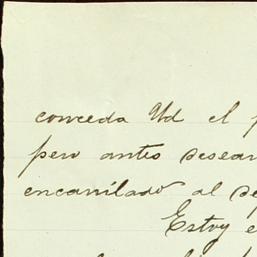 conceda Ud el
pero antes desear
encarrilado al de
Estoy e